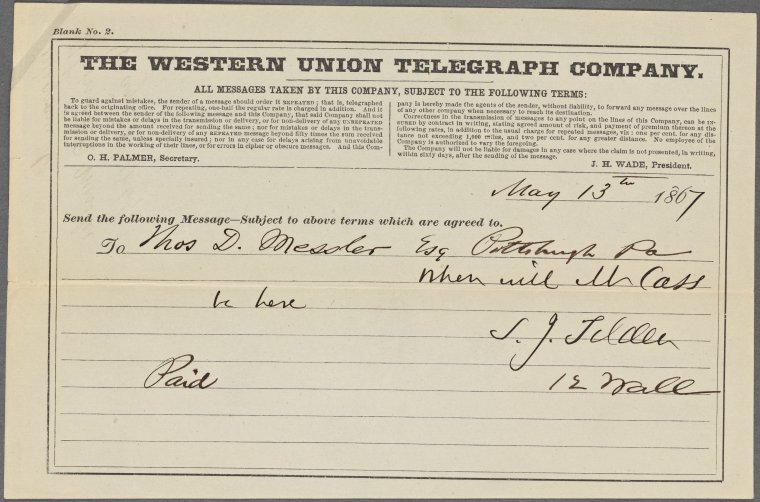 Blank No. 2.
THE WESTERN UNION TELEGRAPH COMPANY.
ALL MESSAGES TAKEN BY THIS COMPANY, SUBJECT TO THE FOLLOWING TERMS:
To guard against mistakes, the sender of a message should order it REPEATED; that is, telegraphed
back to the originating office. For repeating, one-half the regular rate is charged in addition. And it
is agreed between the sender of the following message and this Company, that said Company shall not
be liable for mistakes or delays in the transmission or delivery, or for non-delivery of any UNREPEATED
message beyond the amount received for sending the same; nor for mistakes or delays in the trans-
mission or delivery, or for non-delivery of any REPEATED message beyond fifty times the sum received
for sending the same, unless specially insured; nor in any case for delays arising from unavoidable
interruptions in the working of their lines, or for errors in cipher or obscure messages. And this Com-
pany is hereby made the agents of the sender, without liability, to forward any message over the lines
of any other company when necessary to reach its destination.
Correctness in the transmission of messages to any point on the lines of this Company, can be IN-
SURED by contract in writing, stating agreed amount of risk, and payment of premium thereon at the
following rates, in addition to the usual charge for repeated messages, viz: one per cent. for any dis-
tance not exceeding 1,000 miles, and two per cent. for any greater distance. No employee of the
Company is authorized to vary the foregoing.
The Company will not be liable for damages in any case where the claim is not presented, in writing,
within sixty days, after the sending of the message.
O. H. PALMER, Secretary.
J. H. WADE, President.
May 13th 1867
Send the following Message—Subject to above terms which are agreed to.
To Thos D. Messler Esq Pittsburgh Pa
When will Mr Cass
be here
S. J. Tilden
Paid
12 Wall